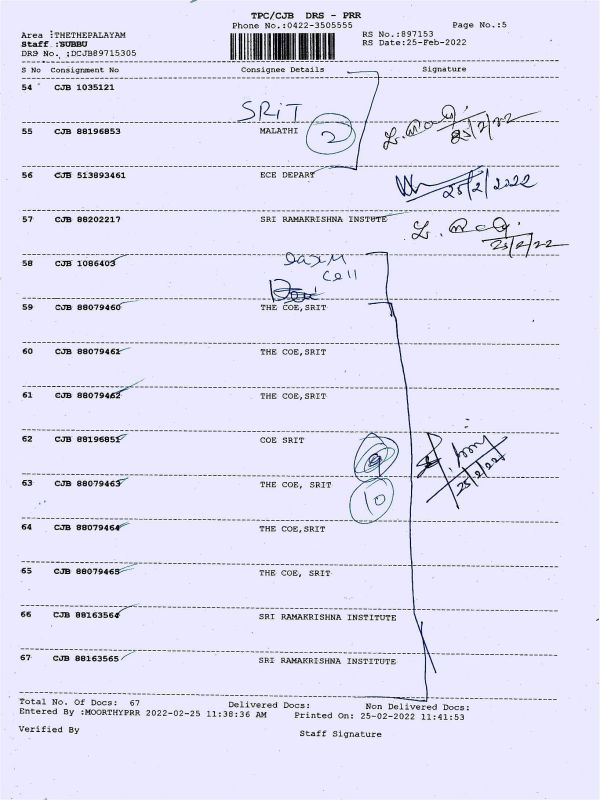 TPC/CJB DRS - PRR
Phone No.:0422-3505555 Page No.:5
Area :THETHEPALAYAM RS No.:897153
Staff :SUBBU RS Date:25-Feb-2022
DRS No. :DCJB89715305
S No Consignment No Consignee Details Signature
54 CJB 1035121
SRiT
55 CJB 88196853 MALATHI 2
25/2/22
56 CJB 513893461 ECE DEPART
25/2/2022
57 CJB 88202217 SRI RAMAKRISHNA INSTUTE
25/2/22
58 CJB 1086403
cell
59 CJB 88079460 THE COE,SRIT
60 CJB 88079461 THE COE,SRIT
61 CJB 88079462 THE COE,SRIT
62 CJB 88196851 COE SRIT
25/2/22
63 CJB 88079463 THE COE, SRIT 10
64 CJB 88079464 THE COE,SRIT
65 CJB 88079465 THE COE, SRIT
66 CJB 88163564 SRI RAMAKRISHNA INSTITUTE
67 CJB 88163565 SRI RAMAKRISHNA INSTITUTE
Total No. Of Docs: 67 Delivered Docs: Non Delivered Docs:
Entered By :MOORTHYPRR 2022-02-25 11:38:36 AM Printed On: 25-02-2022 11:41:53
Verified By Staff Signature